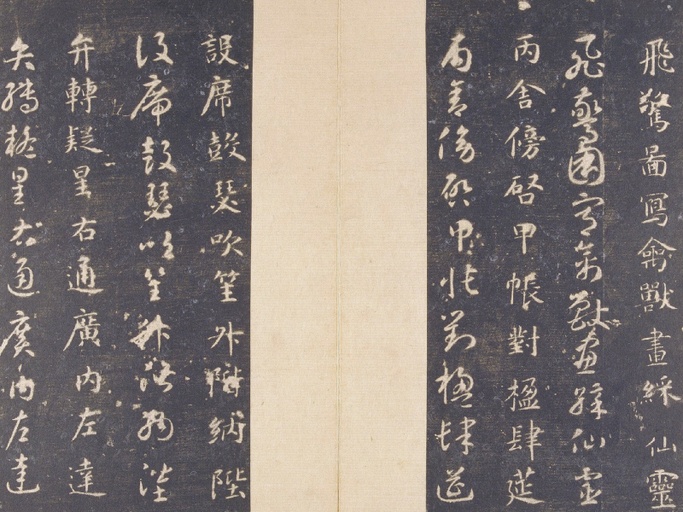 飛驚啚寫禽獸畫綵仙靈
飛驚圖寫禽獸畫綵仙靈
丙舍傍啓甲帳對楹肆筵
丙舍傍啓甲帳對楹肆筵
設席鼓瑟吹笙升階納陛
設席鼓瑟吹笙升階納陛
弁轉疑星右通廣內左達
弁轉疑星右通廣內左達